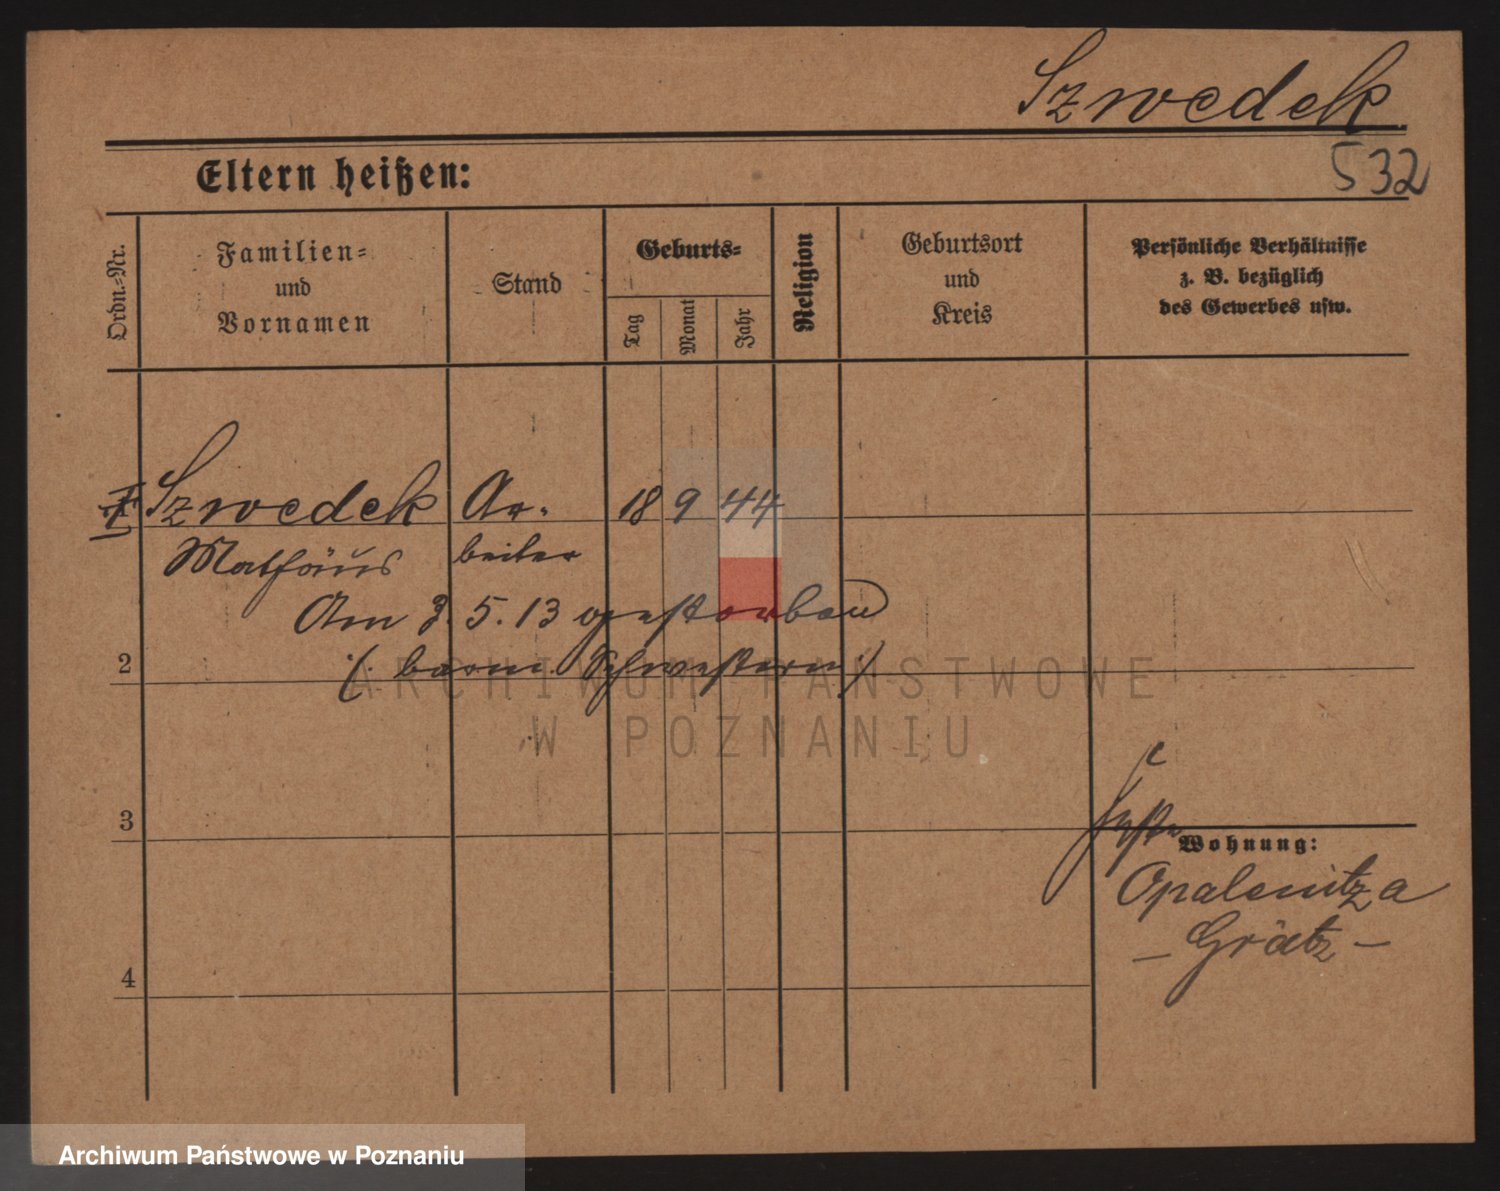 Szwedek
532
Eltern heißen:
Ordn.-Nr.
Familien-
und
Vornamen
Stand
Geburts-
Tag
Monat
Jahr
Religion
Geburtsort
und
Kreis
Persönliche Verhältnisse
z. B. bezüglich
des Gewerbes usw.
Szwedek Ar- 18 9 44
Mathäus beiter
Am 3. 5. 13 gestorben
2
(: barm Schwestern :)
ARCHIWUM PAŃSTWOWE
W POZNANIU
3
Wohnung:
Opalenitza
– Grätz –
4
Archiwum Państwowe w Poznaniu